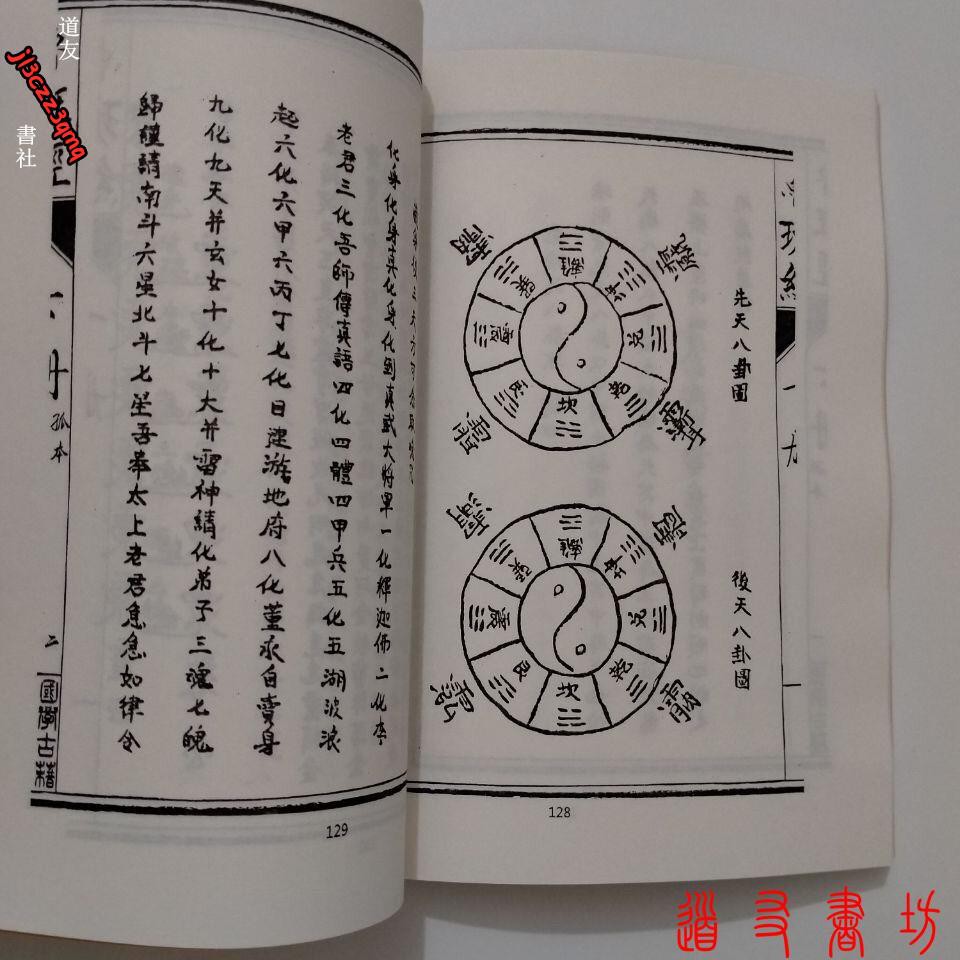 先天八卦圖
後天八卦圖
離
坤
兌
乾
坎
艮
震
巽
離
坤
兌
乾
坎
艮
震
巽
128
化身化身真化身化到真武大將軍一化釋迦佛二化李
老君三化吾師傳真語四化四體四甲兵五化五湖波浪
起六化六甲六丙丁七化日建游地府八化董永自賣身
九化九天并玄女十化十大并雷神請化弟子三魂七魄
歸體請南斗六星北斗七星吾奉太上老君急急如律令
孤本
二
國學古藉
129
道友
書社
jl3czz3qmq
道友書坊